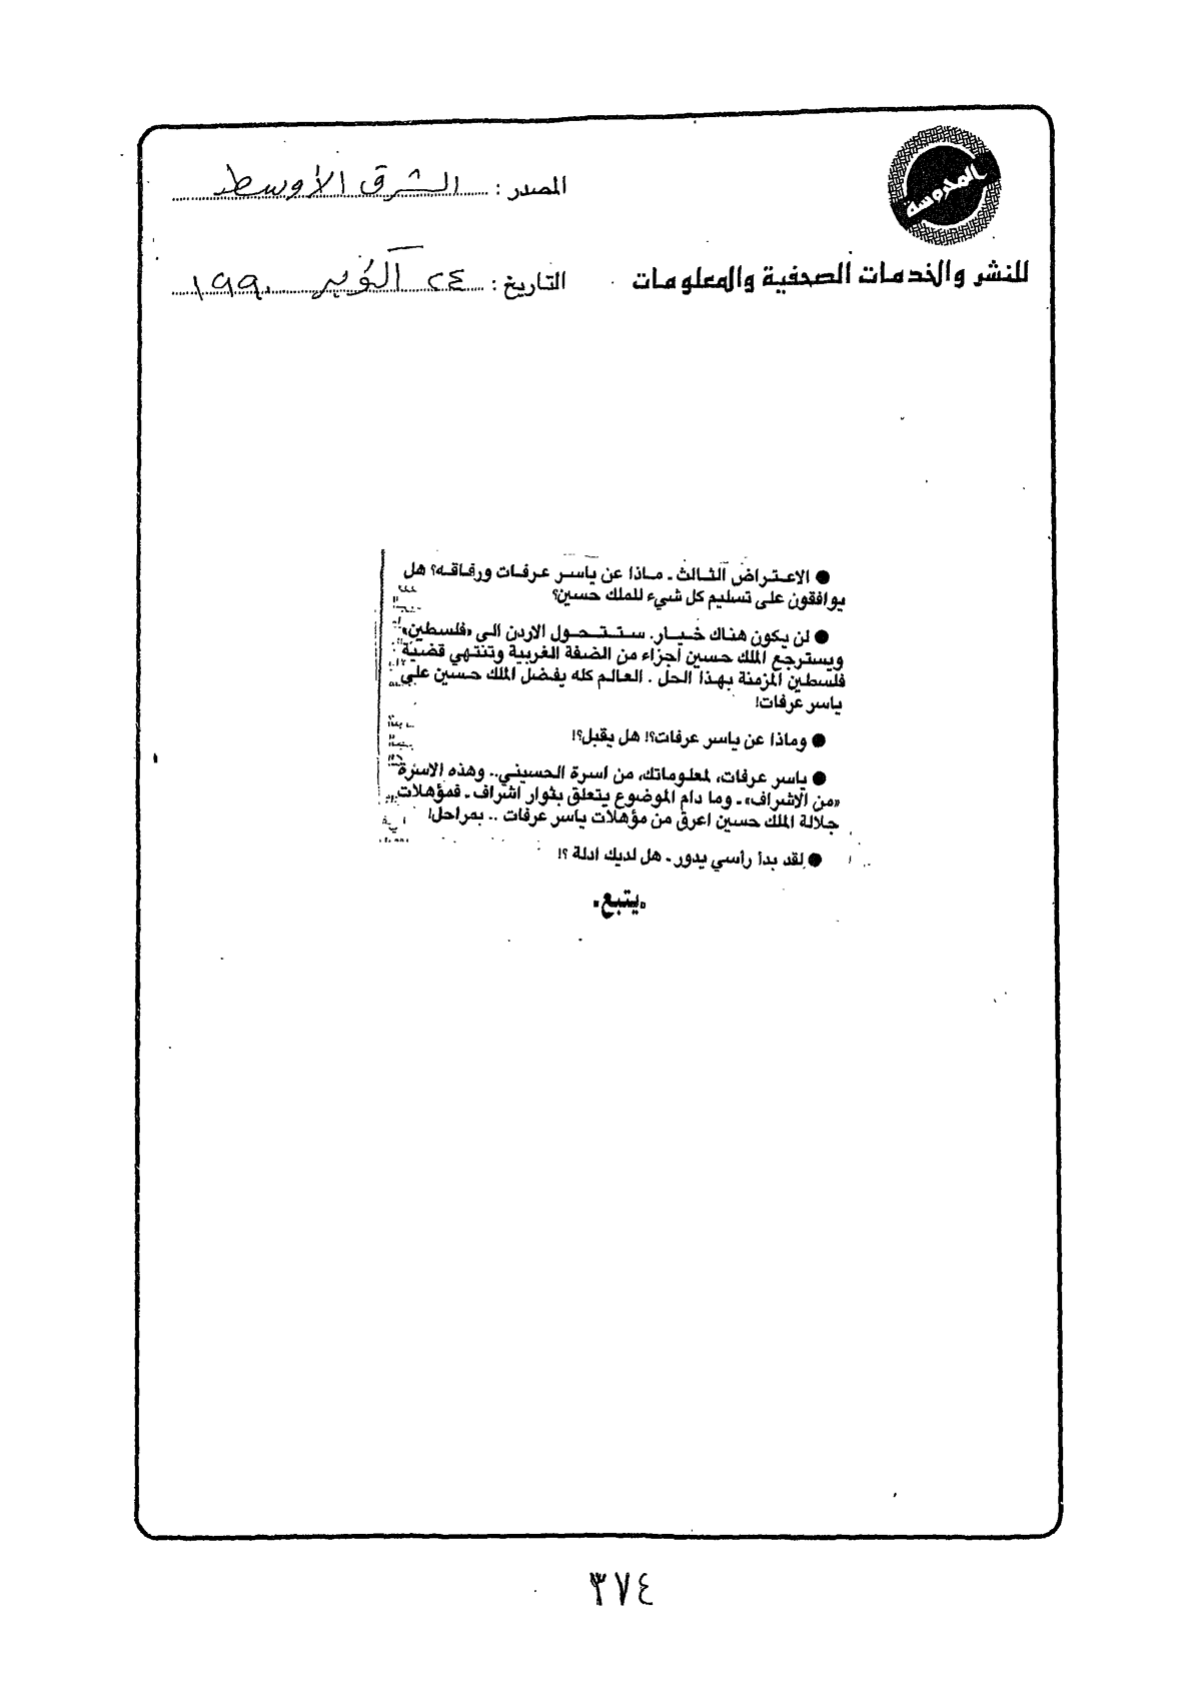 المحروسة
للنشر والخدمات الصحفية والمعلومات
المصدر : الشرق الأوسط
التاريخ : ٢٤ أكتوبر ١٩٩٠
● الاعتراض الثالث ـ ماذا عن ياسر عرفات ورفاقه؟ هل
يوافقون على تسليم كل شيء للملك حسين؟
● لن يكون هناك خيار. ستتحول الاردن الى «فلسطين»
ويسترجع الملك حسين اجزاء من الضفة الغربية وتنتهي قضية
فلسطين المزمنة بهذا الحل . العالم كله يفضل الملك حسين على
ياسر عرفات!
● وماذا عن ياسر عرفات؟! هل يقبل؟!
● ياسر عرفات، لمعلوماتك، من اسرة الحسيني.. وهذه الاسرة
«من الاشراف» ـ وما دام الموضوع يتعلق بثوار اشراف ـ فمؤهلات
جلالة الملك حسين اعرق من مؤهلات ياسر عرفات .. بمراحل!
● لقد بدأ رأسي يدور ـ هل لديك ادلة ؟!
«يتبع»
٣٧٤